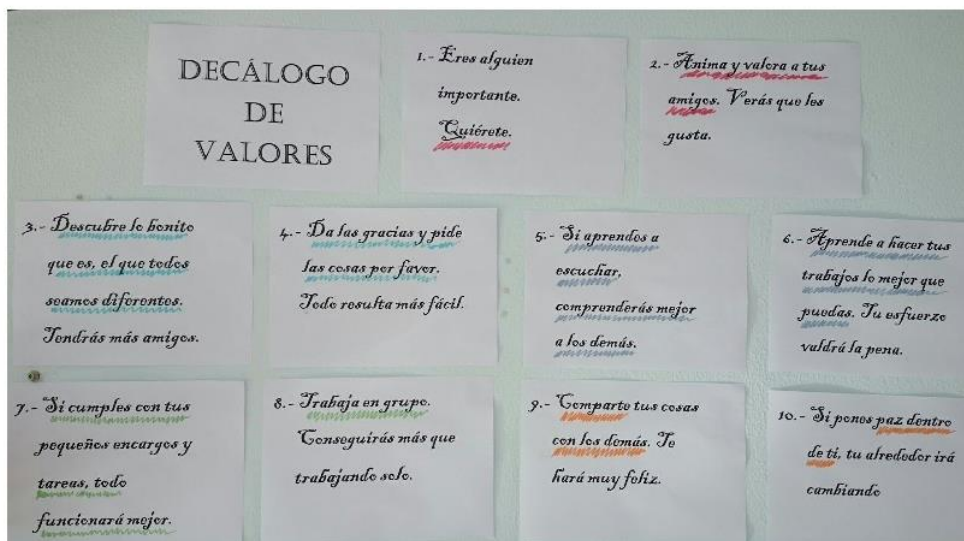 DECÁLOGO
DE
VALORES
1.- Eres alguien
importante.
Quiérete.
2.- Anima y valora a tus
amigos. Verás que les
gusta.
3.- Descubre lo bonito
que es, el que todos
seamos diferentes.
Tendrás más amigos.
4.- Da las gracias y pide
las cosas por favor.
Todo resulta más fácil.
5.- Si aprendes a
escuchar,
comprenderás mejor
a los demás.
6.- Aprende a hacer tus
trabajos lo mejor que
puedas. Tu esfuerzo
valdrá la pena.
7.- Si cumples con tus
pequeños encargos y
tareas, todo
funcionará mejor.
8.- Trabaja en grupo.
Conseguirás más que
trabajando solo.
9.- Comparte tus cosas
con los demás. Te
hará muy feliz.
10.- Si pones paz dentro
de ti, tu alrededor irá
cambiando